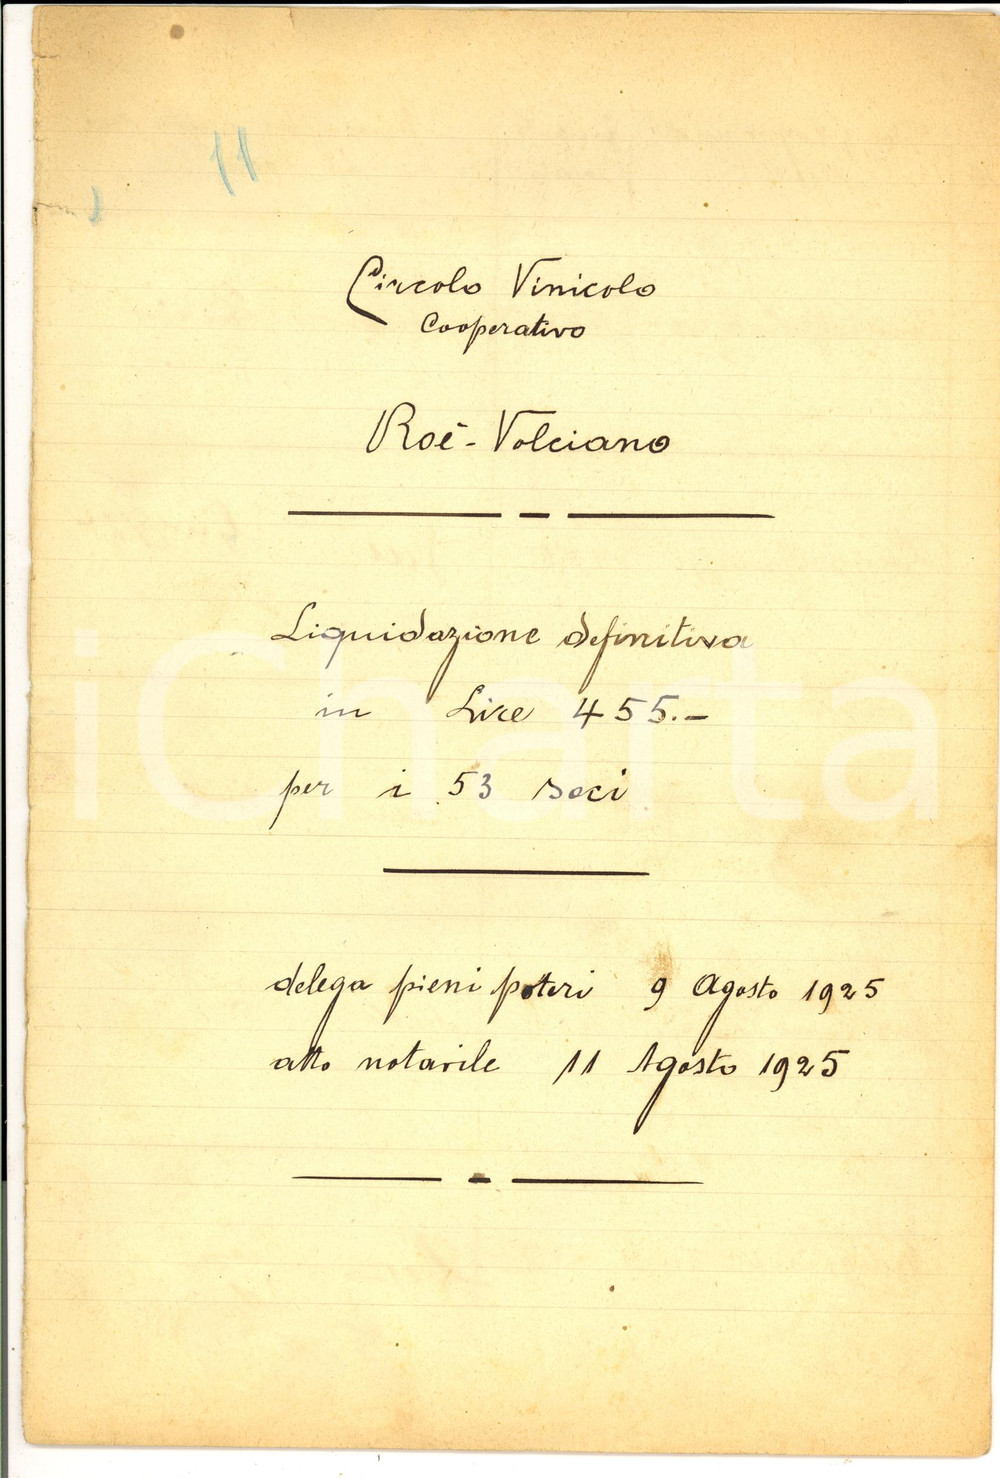 11
Circolo Vinicolo
Cooperativo
Roè - Volciano
Liquidazione definitiva
in Lire 455.-
per i 53 soci
delega pieni poteri 9 Agosto 1925
atto notarile 11 Agosto 1925
iCharta